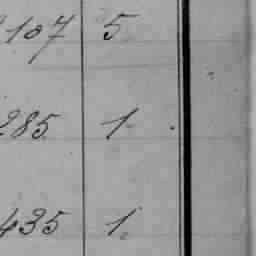 107 5
285 1
435 1